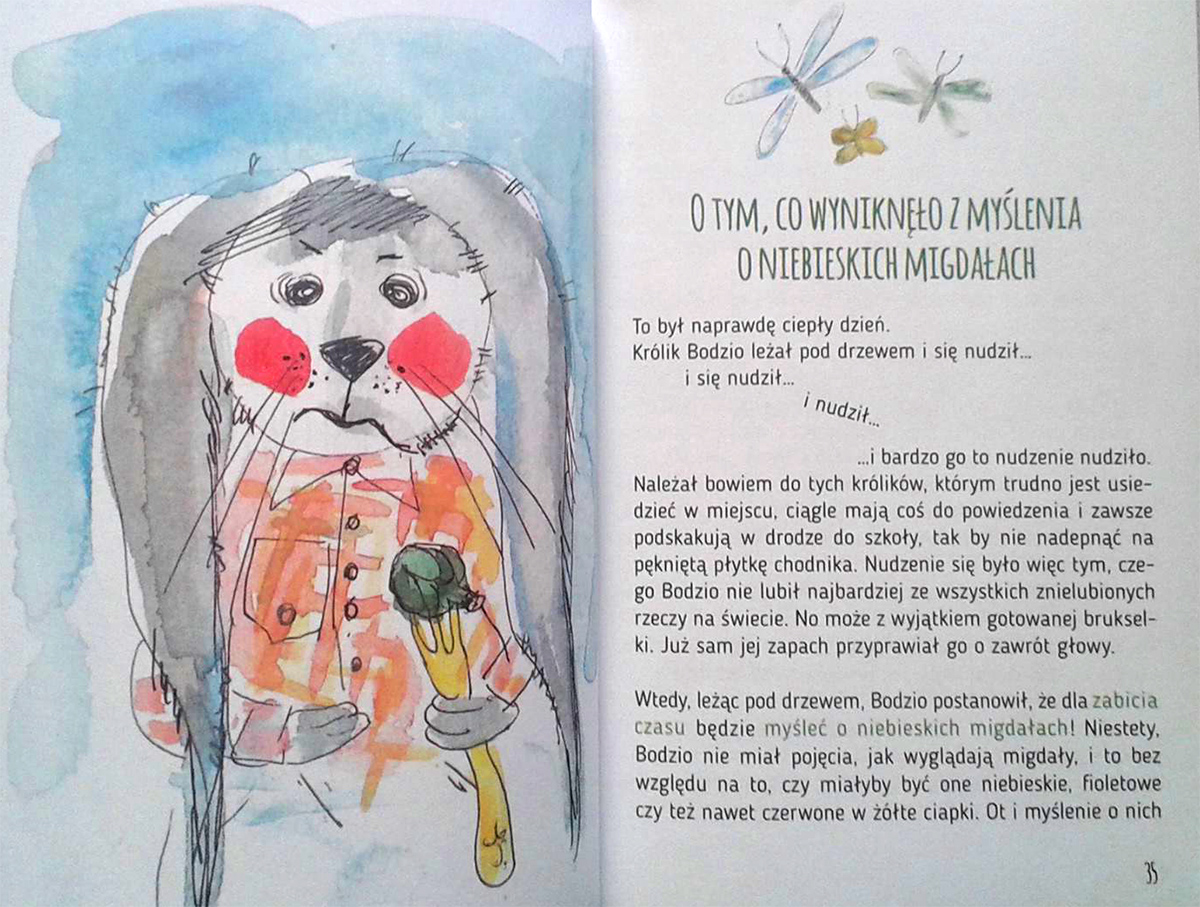 O TYM, CO WYNIKNĘŁO Z MYŚLENIA
O NIEBIESKICH MIGDAŁACH
To był naprawdę ciepły dzień.
Królik Bodzio leżał pod drzewem i się nudził...
i się nudził...
i nudził...
...i bardzo go to nudzenie nudziło.
Należał bowiem do tych królików, którym trudno jest usie-
dzieć w miejscu, ciągle mają coś do powiedzenia i zawsze
podskakują w drodze do szkoły, tak by nie nadepnąć na
pękniętą płytkę chodnika. Nudzenie się było więc tym, cze-
go Bodzio nie lubił najbardziej ze wszystkich znielubionych
rzeczy na świecie. No może z wyjątkiem gotowanej bruksel-
ki. Już sam jej zapach przyprawiał go o zawrót głowy.
Wtedy, leżąc pod drzewem, Bodzio postanowił, że dla zabicia
czasu będzie myśleć o niebieskich migdałach! Niestety,
Bodzio nie miał pojęcia, jak wyglądają migdały, i to bez
względu na to, czy miałyby być one niebieskie, fioletowe
czy też nawet czerwone w żółte ciapki. Ot i myślenie o nich
35